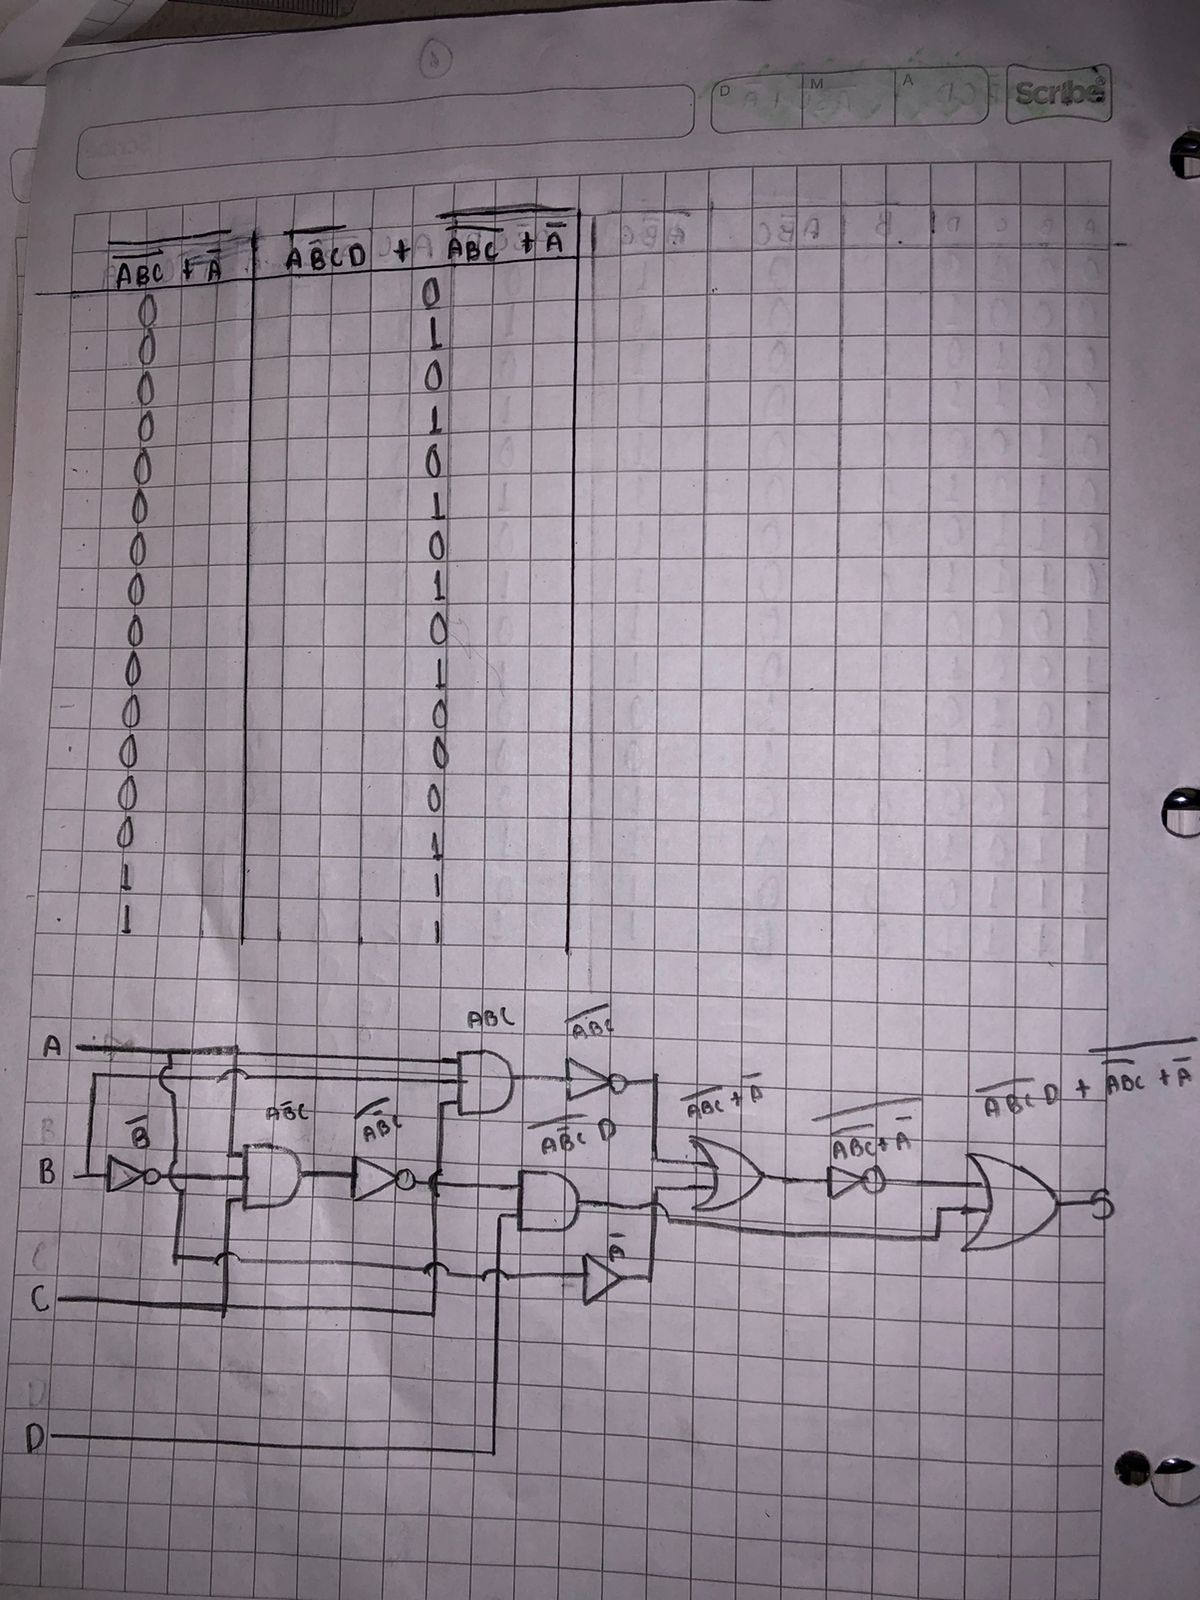 D M A Scribe
A̅B̅C̅ + A̅ | A̅B̅C̅D + A̅B̅C̅ + A̅
0 0
0 1
0 0
0 1
0 0
0 1
0 0
0 1
0 0
0 1
0 0
0 0
0 0
0 1
1 1
1 1
ABC A̅B̅C̅
A
A̅B̅C̅ + A̅
A̅B̅C̅D + A̅B̅C̅ + A̅
B̅ AB̅C A̅B̅C̅ A̅B̅C̅ D A̅B̅C̅ + A̅
B S
A̅
C
D